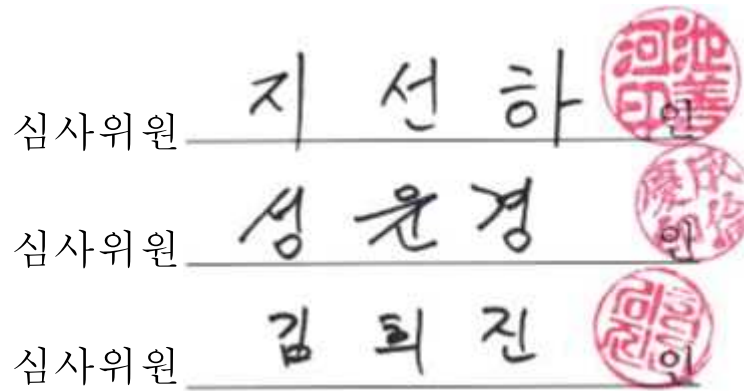 심사위원 지 선 하 인
심사위원 성 윤 경 인
심사위원 김 희 진 인